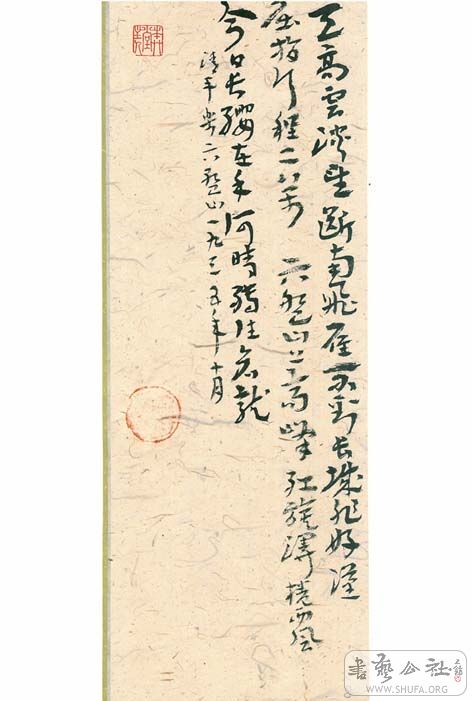 天高雲淡望断南飛雁不到长城非好漢
屈指行程二万 六盤山上高峰 红旗漫捲西風
今日长纓在手何時縛住蒼龍
清平樂六盤山一九三五年十月
書藝公社
WWW.SHUFA.ORG